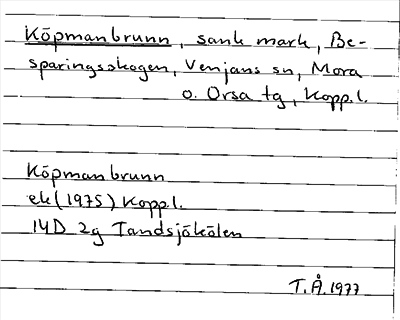 Köpmanbrunn, sank mark, Be-
sparingsskogen, Venjans sn, Mora
o. Orsa tg, Kopp.l.
Köpmanbrunn
ek (1975) Kopp.l.
14D 2g Tandsjökölen
T.Å.1977